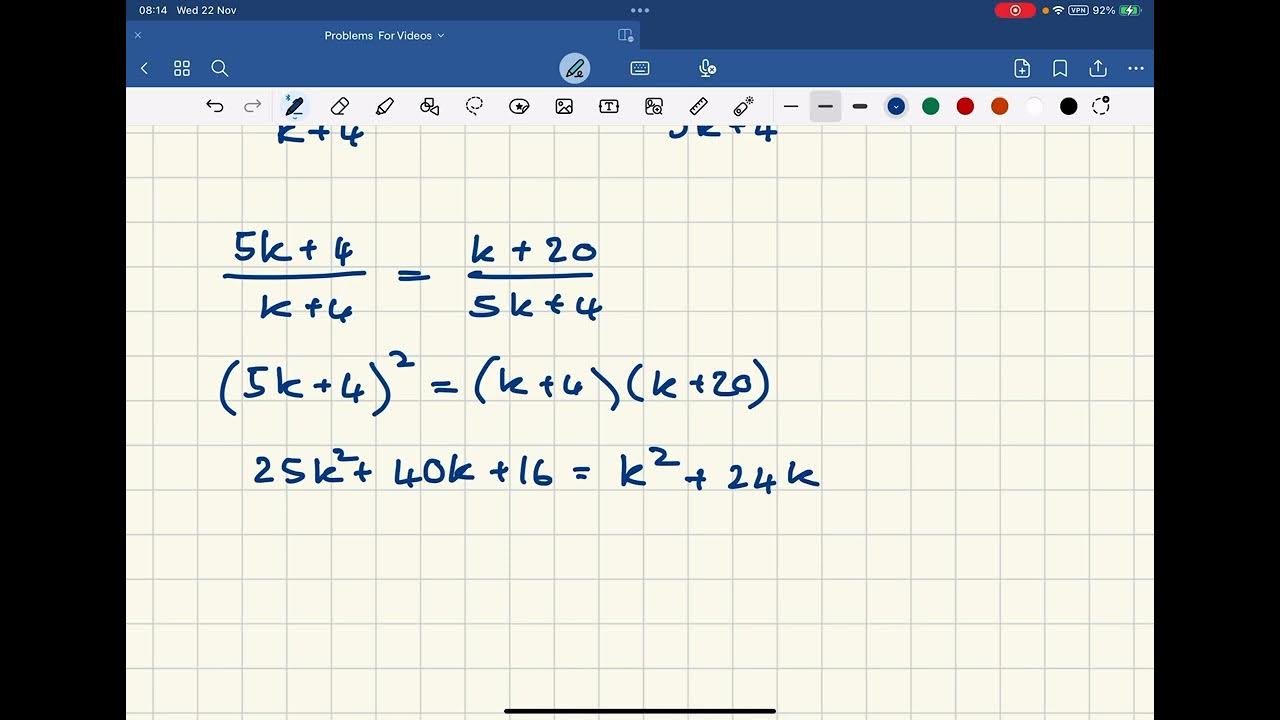 08:14 Wed 22 Nov
VPN 92%
Problems For Videos
k+4 5k+4
5k+4 / k+4 = k+20 / 5k+4
(5k+4)² = (k+4)(k+20)
25k²+ 40k+16 = k² + 24k